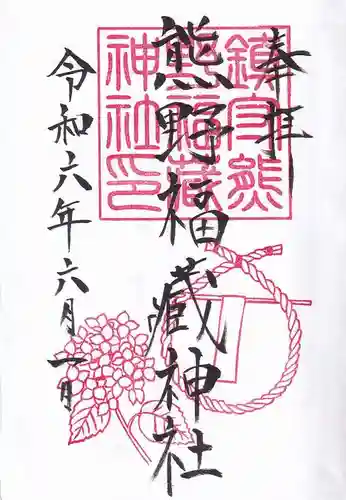 奉拝
熊野福藏神社
令和六年六月一日
鎮守熊
野福藏
神社印